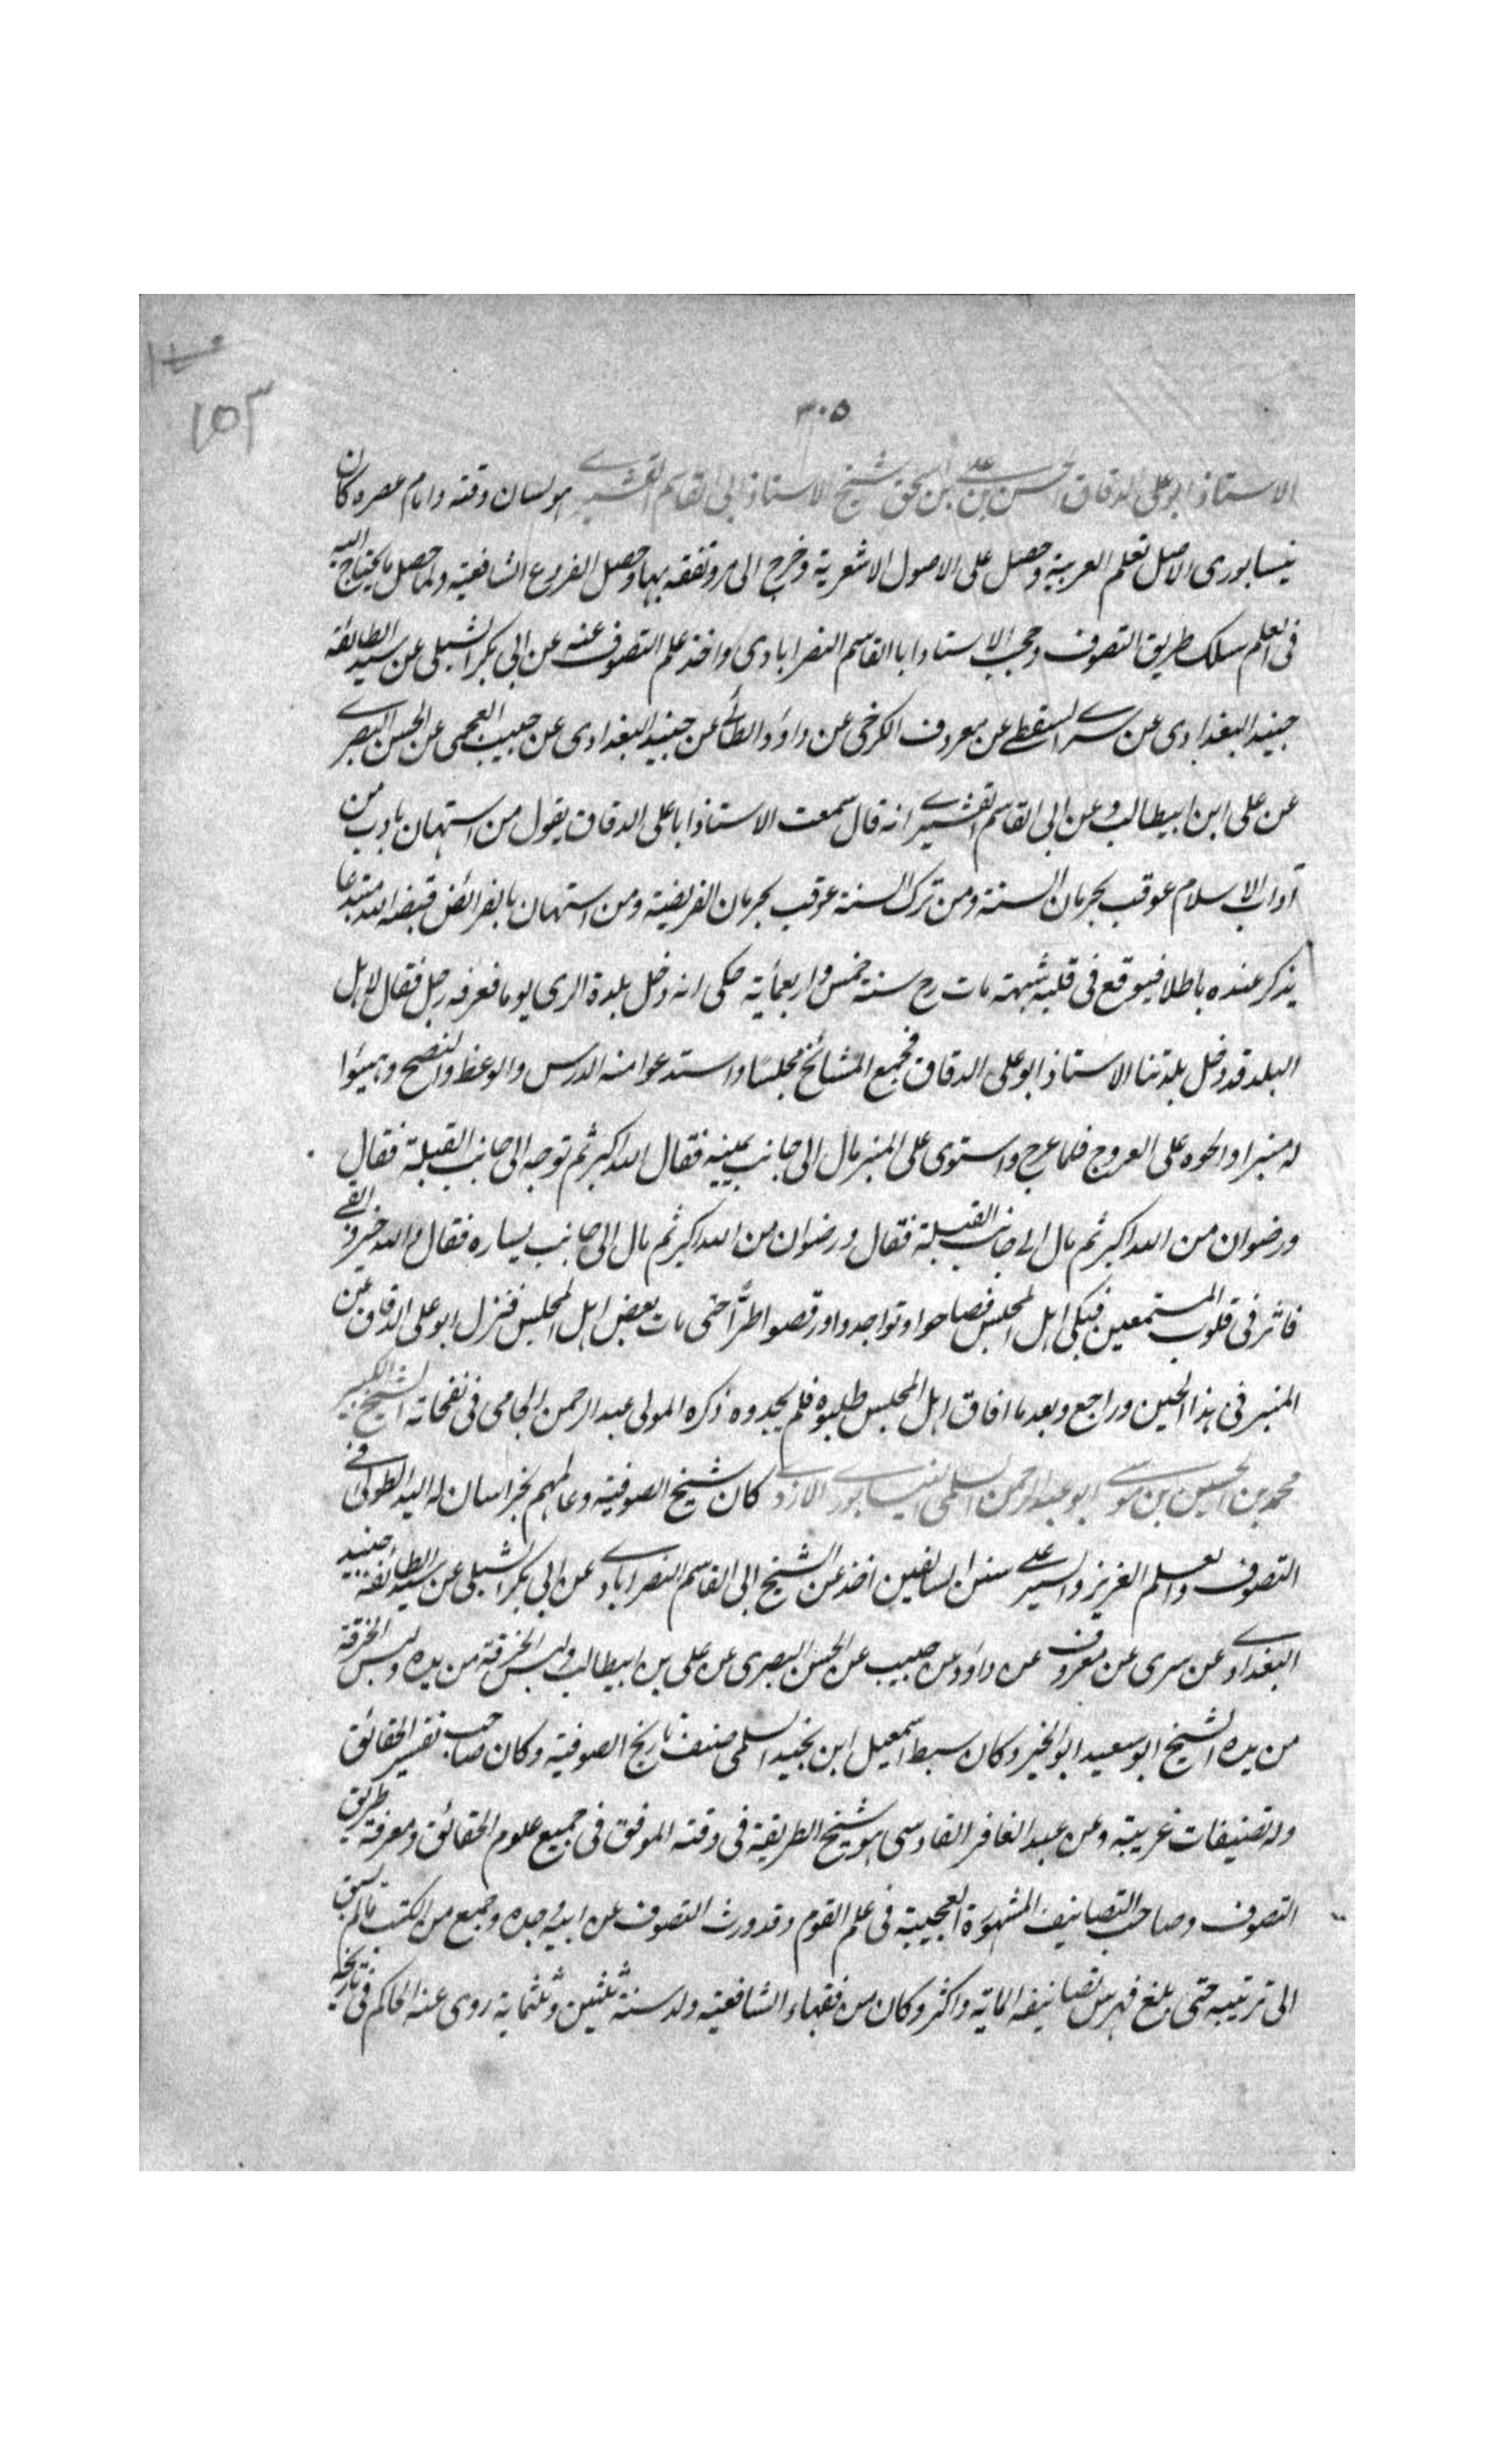 ١٥٣
٣٠٥
الاستاذ ابو على الدقاق الحسن بن على بن اسحق شيخ الاستاذ ابى القاسم القشيرى هو لسان وقته وامام عصره كان
نيسابورى الاصل تعلم العربية وحصل على الاصول الاشعرية وخرج الى مرو وتفقه بها وحصل الفروع الشافعية ولما حصل ما يحتاج اليه
فى العلم سلك طريق التصوف وصحب الاستاذ ابا القاسم النصرابادى واخذ علم التصوف عنه عن ابى بكر الشبلى عن سيد الطائفة
جنيد البغدادى عن سرى السقطى عن معروف الكرخى عن داود الطائى عن جنيد البغدادى عن حبيب العجمى عن الحسن البصرى
عن على ابن ابيطالب وعن ابى القاسم القشيرى انه قال سمعت الاستاذ ابا على الدقاق يقول من استهان بادب من
آداب الاسلام عوقب بحرمان السنة ومن ترك السنة عوقب بحرمان الفريضة ومن استهان بالفرائض قيضه الله مبتدعا
يذكر عنده باطلا فيوقع فى قلبه شبهة مات رح سنة خمس واربعمأية حكى انه دخل بلدة الرى يوما فعرفه رجل فقال لاهل
البلد قد دخل بلدتنا الاستاذ ابو على الدقاق فجمع المشائخ مجلسًا واستدعوا منه الدرس والوعظ والنصح وهيئوا
له منبرا والحوه على العروج فلما عرج واستوى على المنبر مال الى جانب يمينه فقال الله اكبر ثم توجه الى جانب القبلة فقال
ورضوان من الله اكبر ثم مال الى جانب القبلة فقال ورضوان من الله اكبر ثم مال الى جانب يساره فقال والله خير وابقى
فاثر فى قلوب المستمعين فبكى اهل المجلس فصاحوا وتواجدوا ورقصوا طرًّا حتى مات بعض اهل المجلس فنزل ابو على الدقاق عن
المنبر فى هذا الحين وراجع وبعد ما افاق اهل المجلس طلبوه فلم يجدوه ذكره المولى عبد الرحمن الجامى فى نفحاته الشيخ الكبير
محمد بن الحسين بن موسى ابو عبد الرحمن السلمى النيسابورى الازدى كان شيخ الصوفية وعالمهم بخراسان له اليد الطولى فى
التصوف والعلم الغزيز والسير على سنن السالفين اخذ عن الشيخ ابى القاسم النصرابادى عن ابى بكر الشبلى عن سيد الطائفة جنيد
البغدادى عن سرى عن معروف عن داود عن حبيب عن الحسن البصرى عن على بن ابيطالب ولبس الخرقة من يده ولبس الخرقة
من يده الشيخ ابو سعيد ابو الخير وكان سبط اسمعيل ابن نجيد السلمى صنف تاريخ الصوفية وكان صاحب تفسير الحقائق
وله تصنيفات غريبة وعن عبد الغافر الفارسى هو شيخ الطريقة فى وقته الموفق فى جميع علوم الحقائق ومعرفة طريق
التصوف وصاحب التصانيف المشهورة العجيبة فى علم القوم وقد ورث التصوف عن ابيه وجده وجمع من الكتب ما لم يسبق
الى ترتيبه حتى بلغ فهرس تصانيفه الماية واكثر وكان من فقهاء الشافعية ولد سنة ثلثين وثلثماية روى عنه الحاكم فى تاريخه